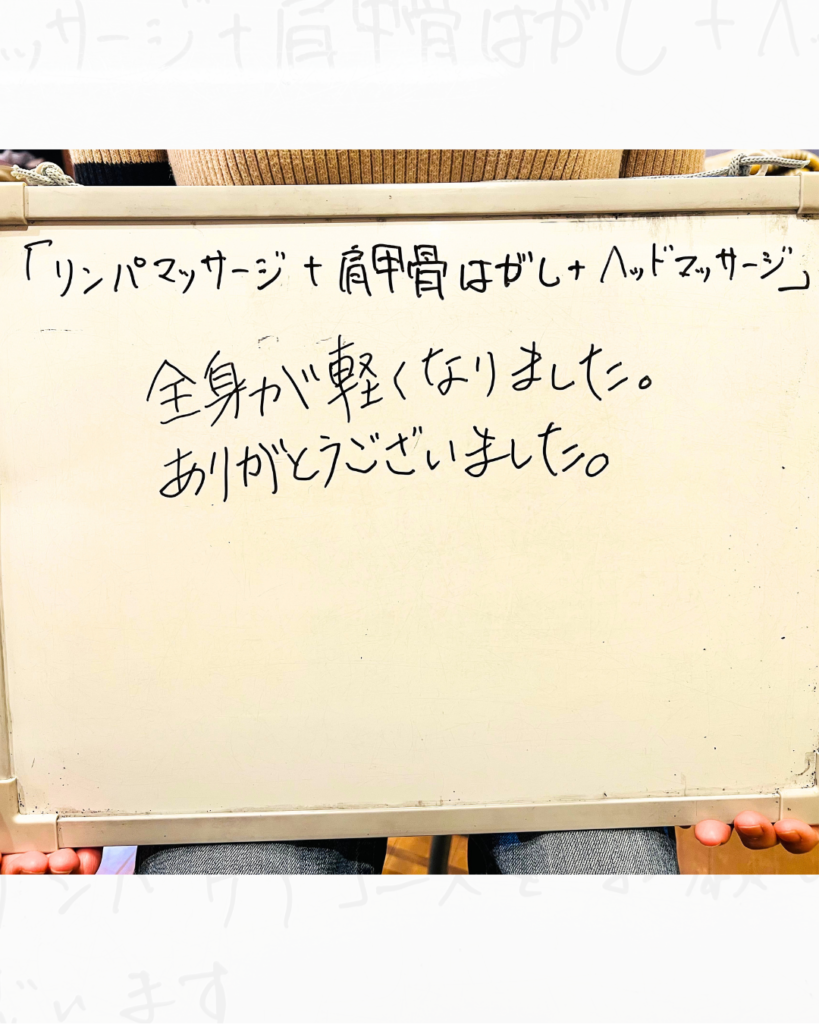 ッサージ+肩甲骨はがし+ヘ
「リンパマッサージ+肩甲骨はがし+ヘッドマッサージ」
全身が軽くなりました。
ありがとうございました。
います